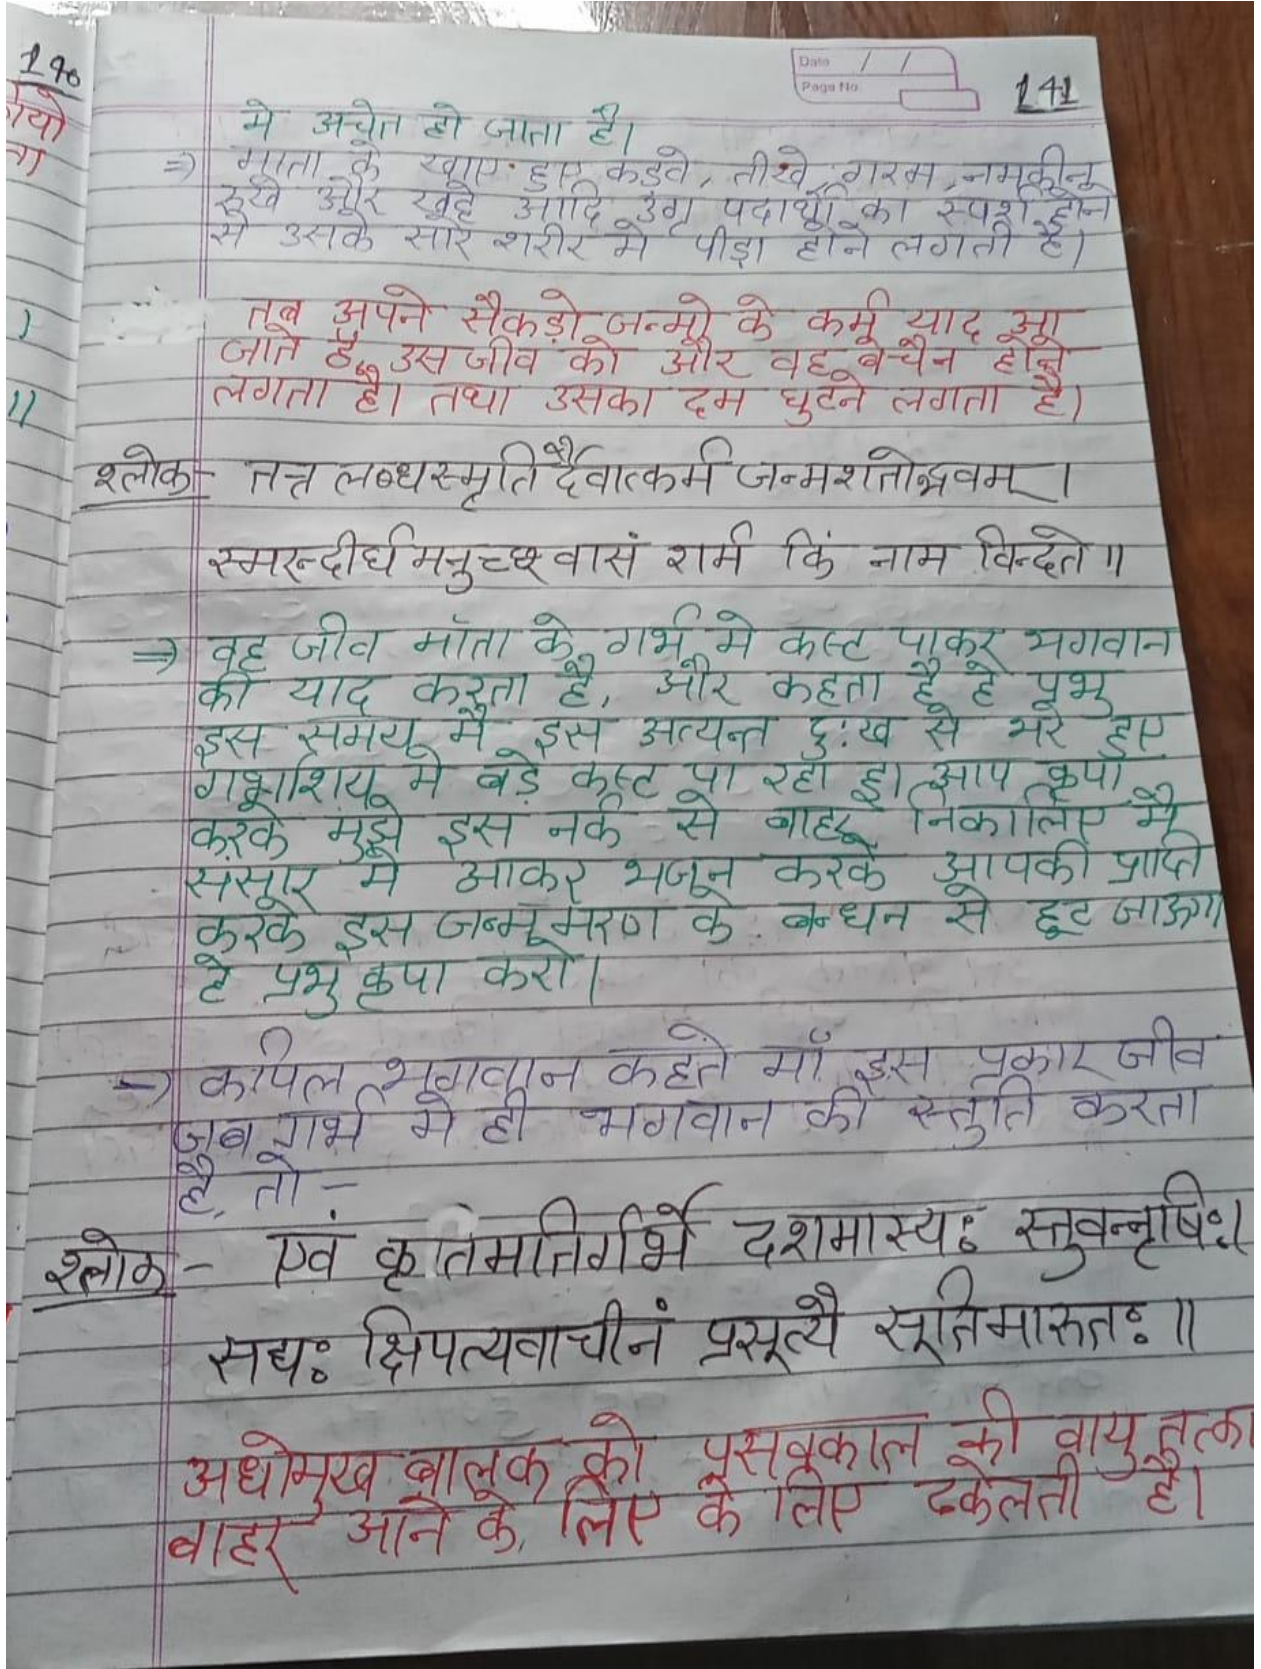 190
Date / /
Page No.
141
मे अचेत हो जाता है।
⇒ माता के खाए हुए कड़वे, तीखे, गरम, नमकीन
रूखे और खट्टे आदि उग्र पदार्थों का स्पर्श होने
से उसके सारे शरीर मे पीड़ा होने लगती है।
तब अपने सैकड़ो जन्मो के कर्म याद आ
जाते है, उस जीव को और वह बेचैन होने
लगता है। तथा उसका दम घुटने लगता है।
श्लोक- तत्र लब्धस्मृतिर्दैवात्कर्म जन्मशतोद्भवम् ।
स्मरन्दीर्घमनुच्छ्वासं शर्म किं नाम विन्दते ॥
⇒ वह जीव माँता के गर्भ मे कस्ट पाकर भगवान
को याद करता है, और कहता है हे प्रभु
इस समय मै इस अत्यन्त दुःख से भरे हुए
गर्भाशय मे बड़े कस्ट पा रहा हू। आप कृपा
करके मुझे इस नर्क से बाहर निकालिए मै
संसार मे आकर भजन करके आपकी प्राप्ति
करके इस जन्म मरण के बन्धन से छूट जाऊगा
हे प्रभु कृपा करो।
→ कपिल भगवान कहते माँ इस प्रकार जीव
जब गर्भ मे ही भगवान की स्तुति करता
है, तो -
श्लोक - एवं कृतमतिर्गर्भे दशमास्यः स्तुवन्नृषिः।
सद्यः क्षिपत्यवाचीनं प्रसूत्यै सूतिमारुतः ॥
अधोमुख बालक को प्रसवकाल की वायु तत्का
बाहर आने के लिए के लिए ढकेलती है।